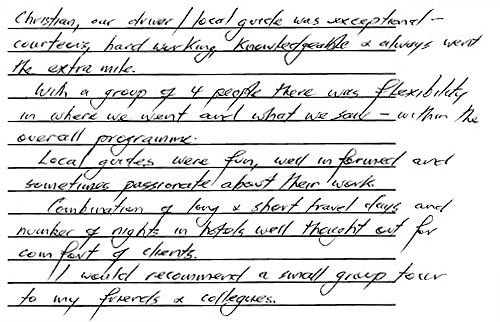 Christian, our driver/local guide was exceptional -
courteous, hard working, knowledgeable & always went
the extra mile.
With a group of 4 people there was flexibility
in where we went and what we saw - within the
overall programme.
Local guides were fun, well informed and
sometimes passionate about their work.
Combination of long & short travel days and
number of nights in hotels well thought out for
comfort of clients.
I would recommend a small group tour
to my friends & collegues.